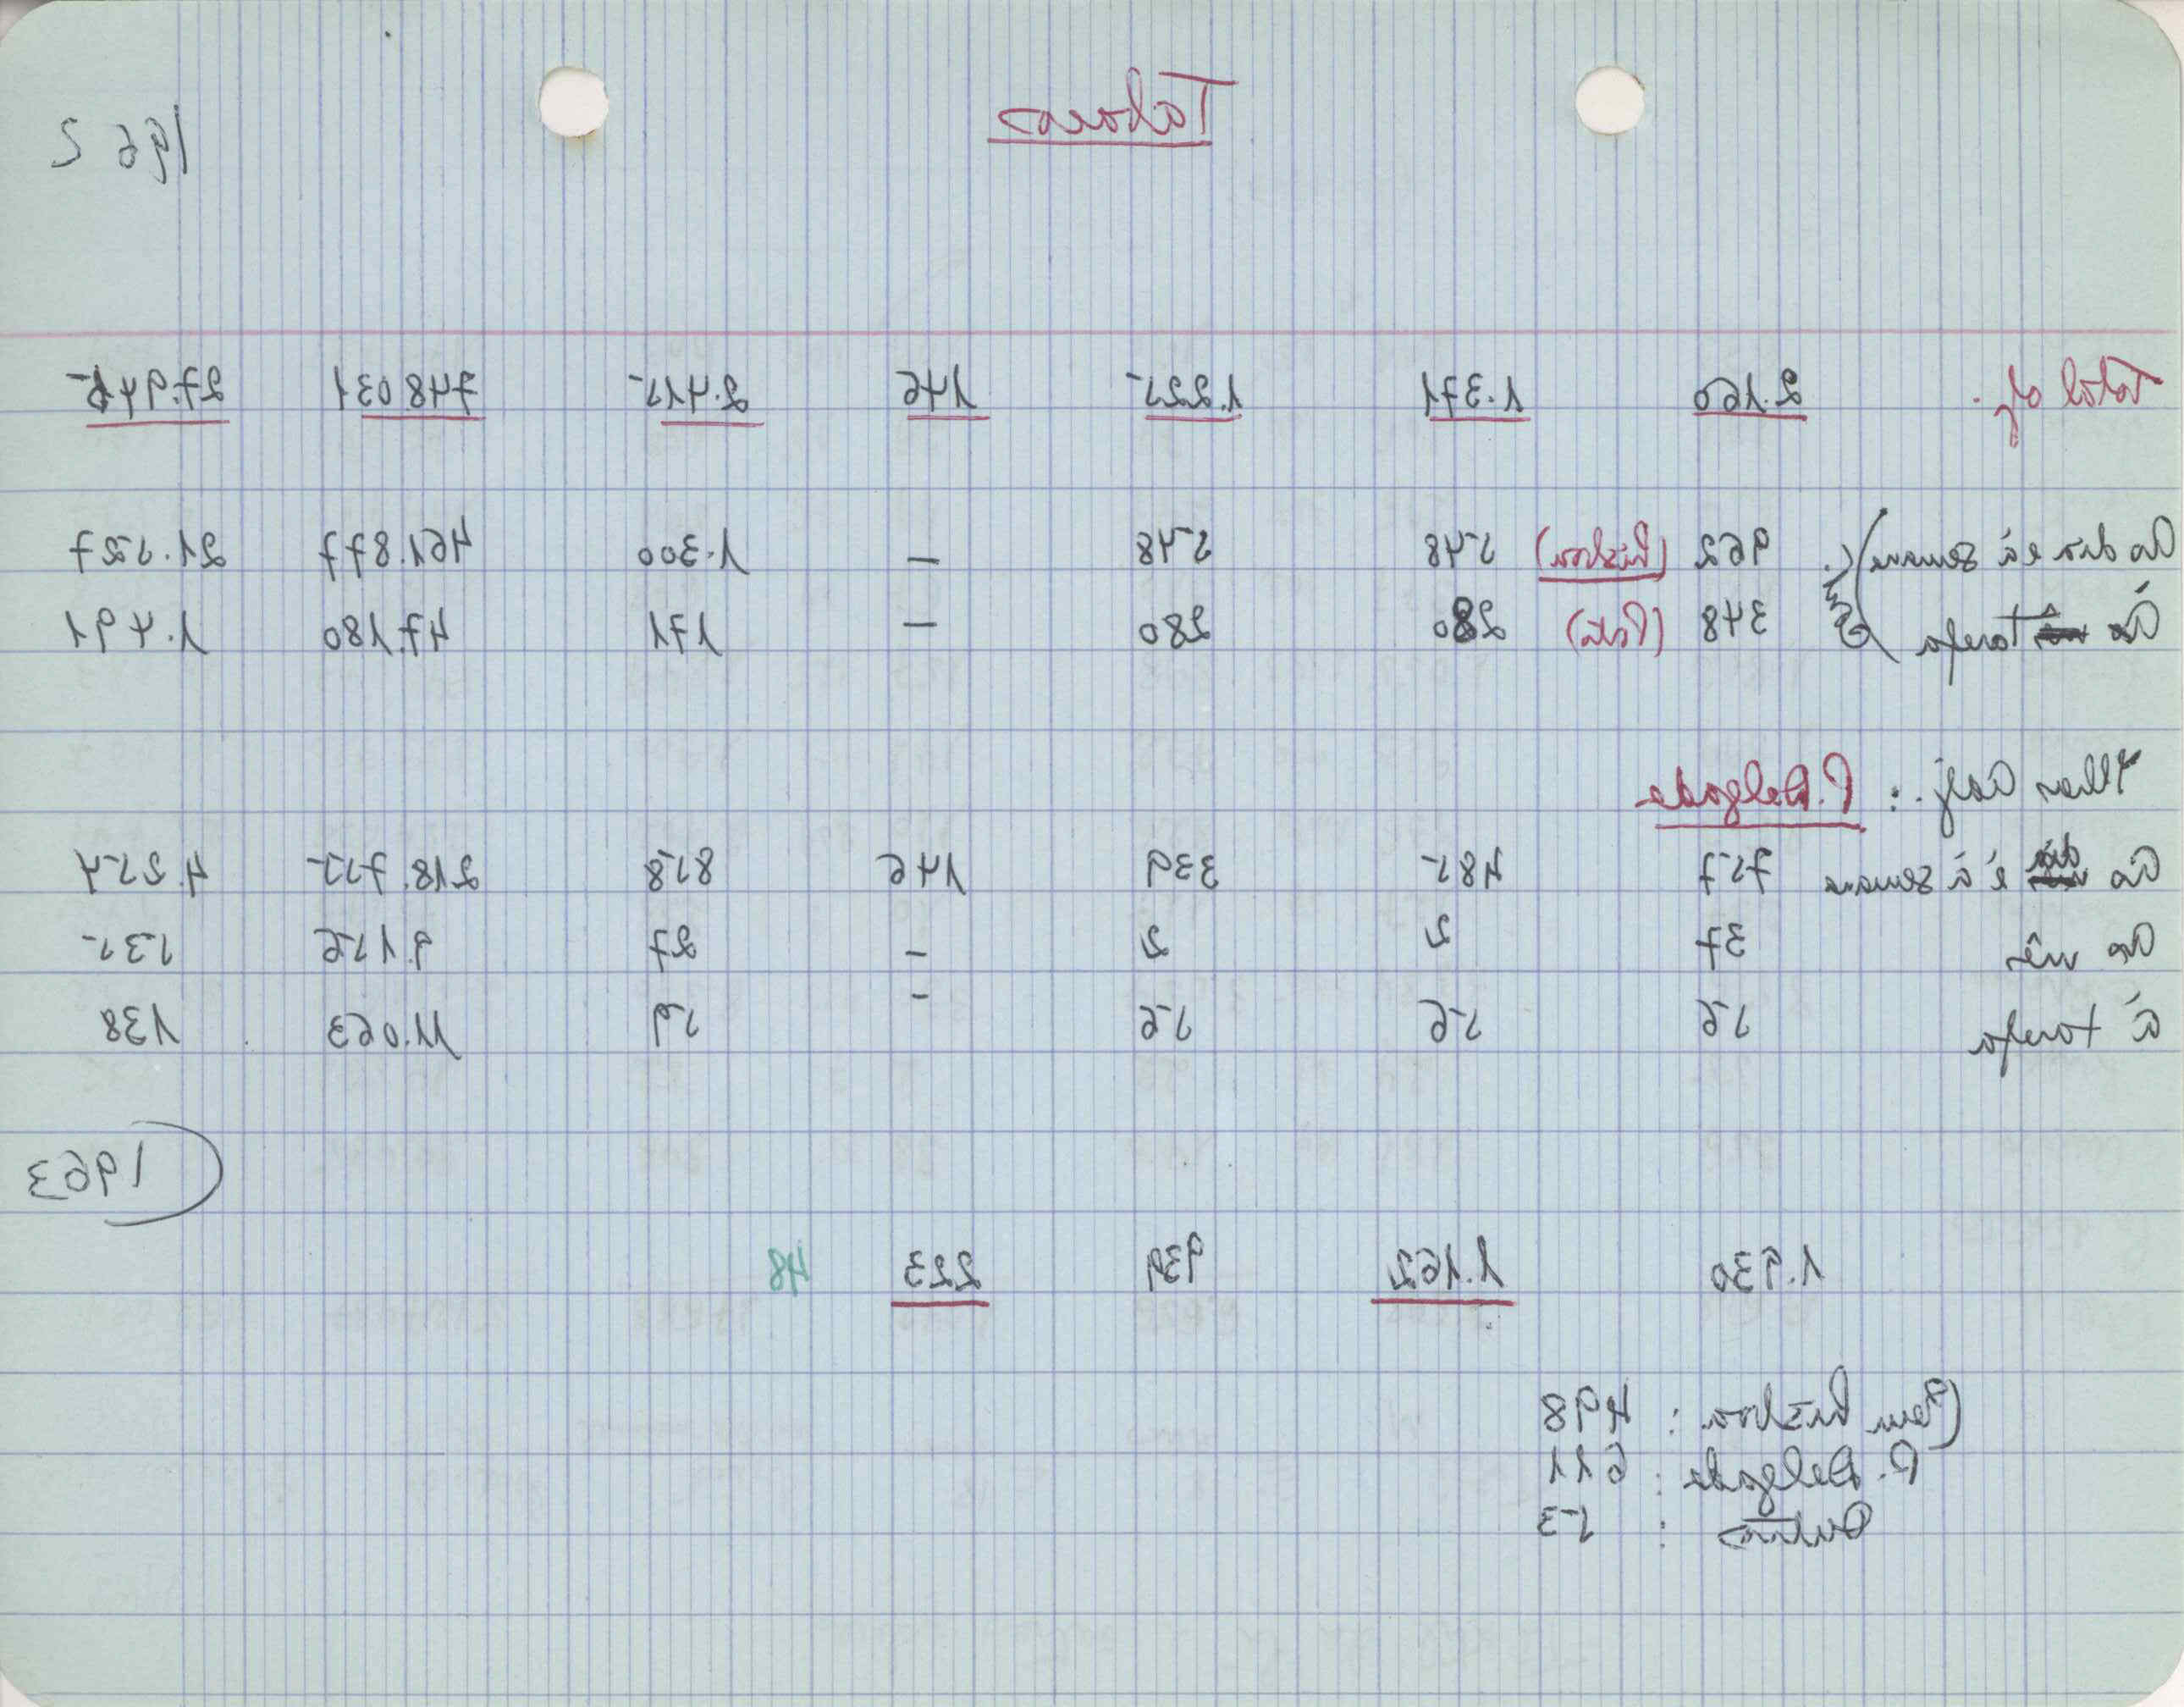 Tabacos
1962
Total 2.160 1.371 1.225 146 2.415 748.031 27.945
Ao dia e à semana 962 (Lisboa) 548 548 — 1.300 461.877 21.527
À tarefa 348 (Porto) 280 280 — 171 47.180 1.491
Cont.
Ilhas Adj.: P. Delgada
Ao dia e à semana 757 485 339 146 858 218.755 4.254
Ao mês 37 2 2 — 27 9.156 535
à tarefa 56 56 56 — 59 11.063 138
1963
1.930 1.162 939 223 48
(Em Lisboa : 498
P. Delgada : 611
Outros : 53